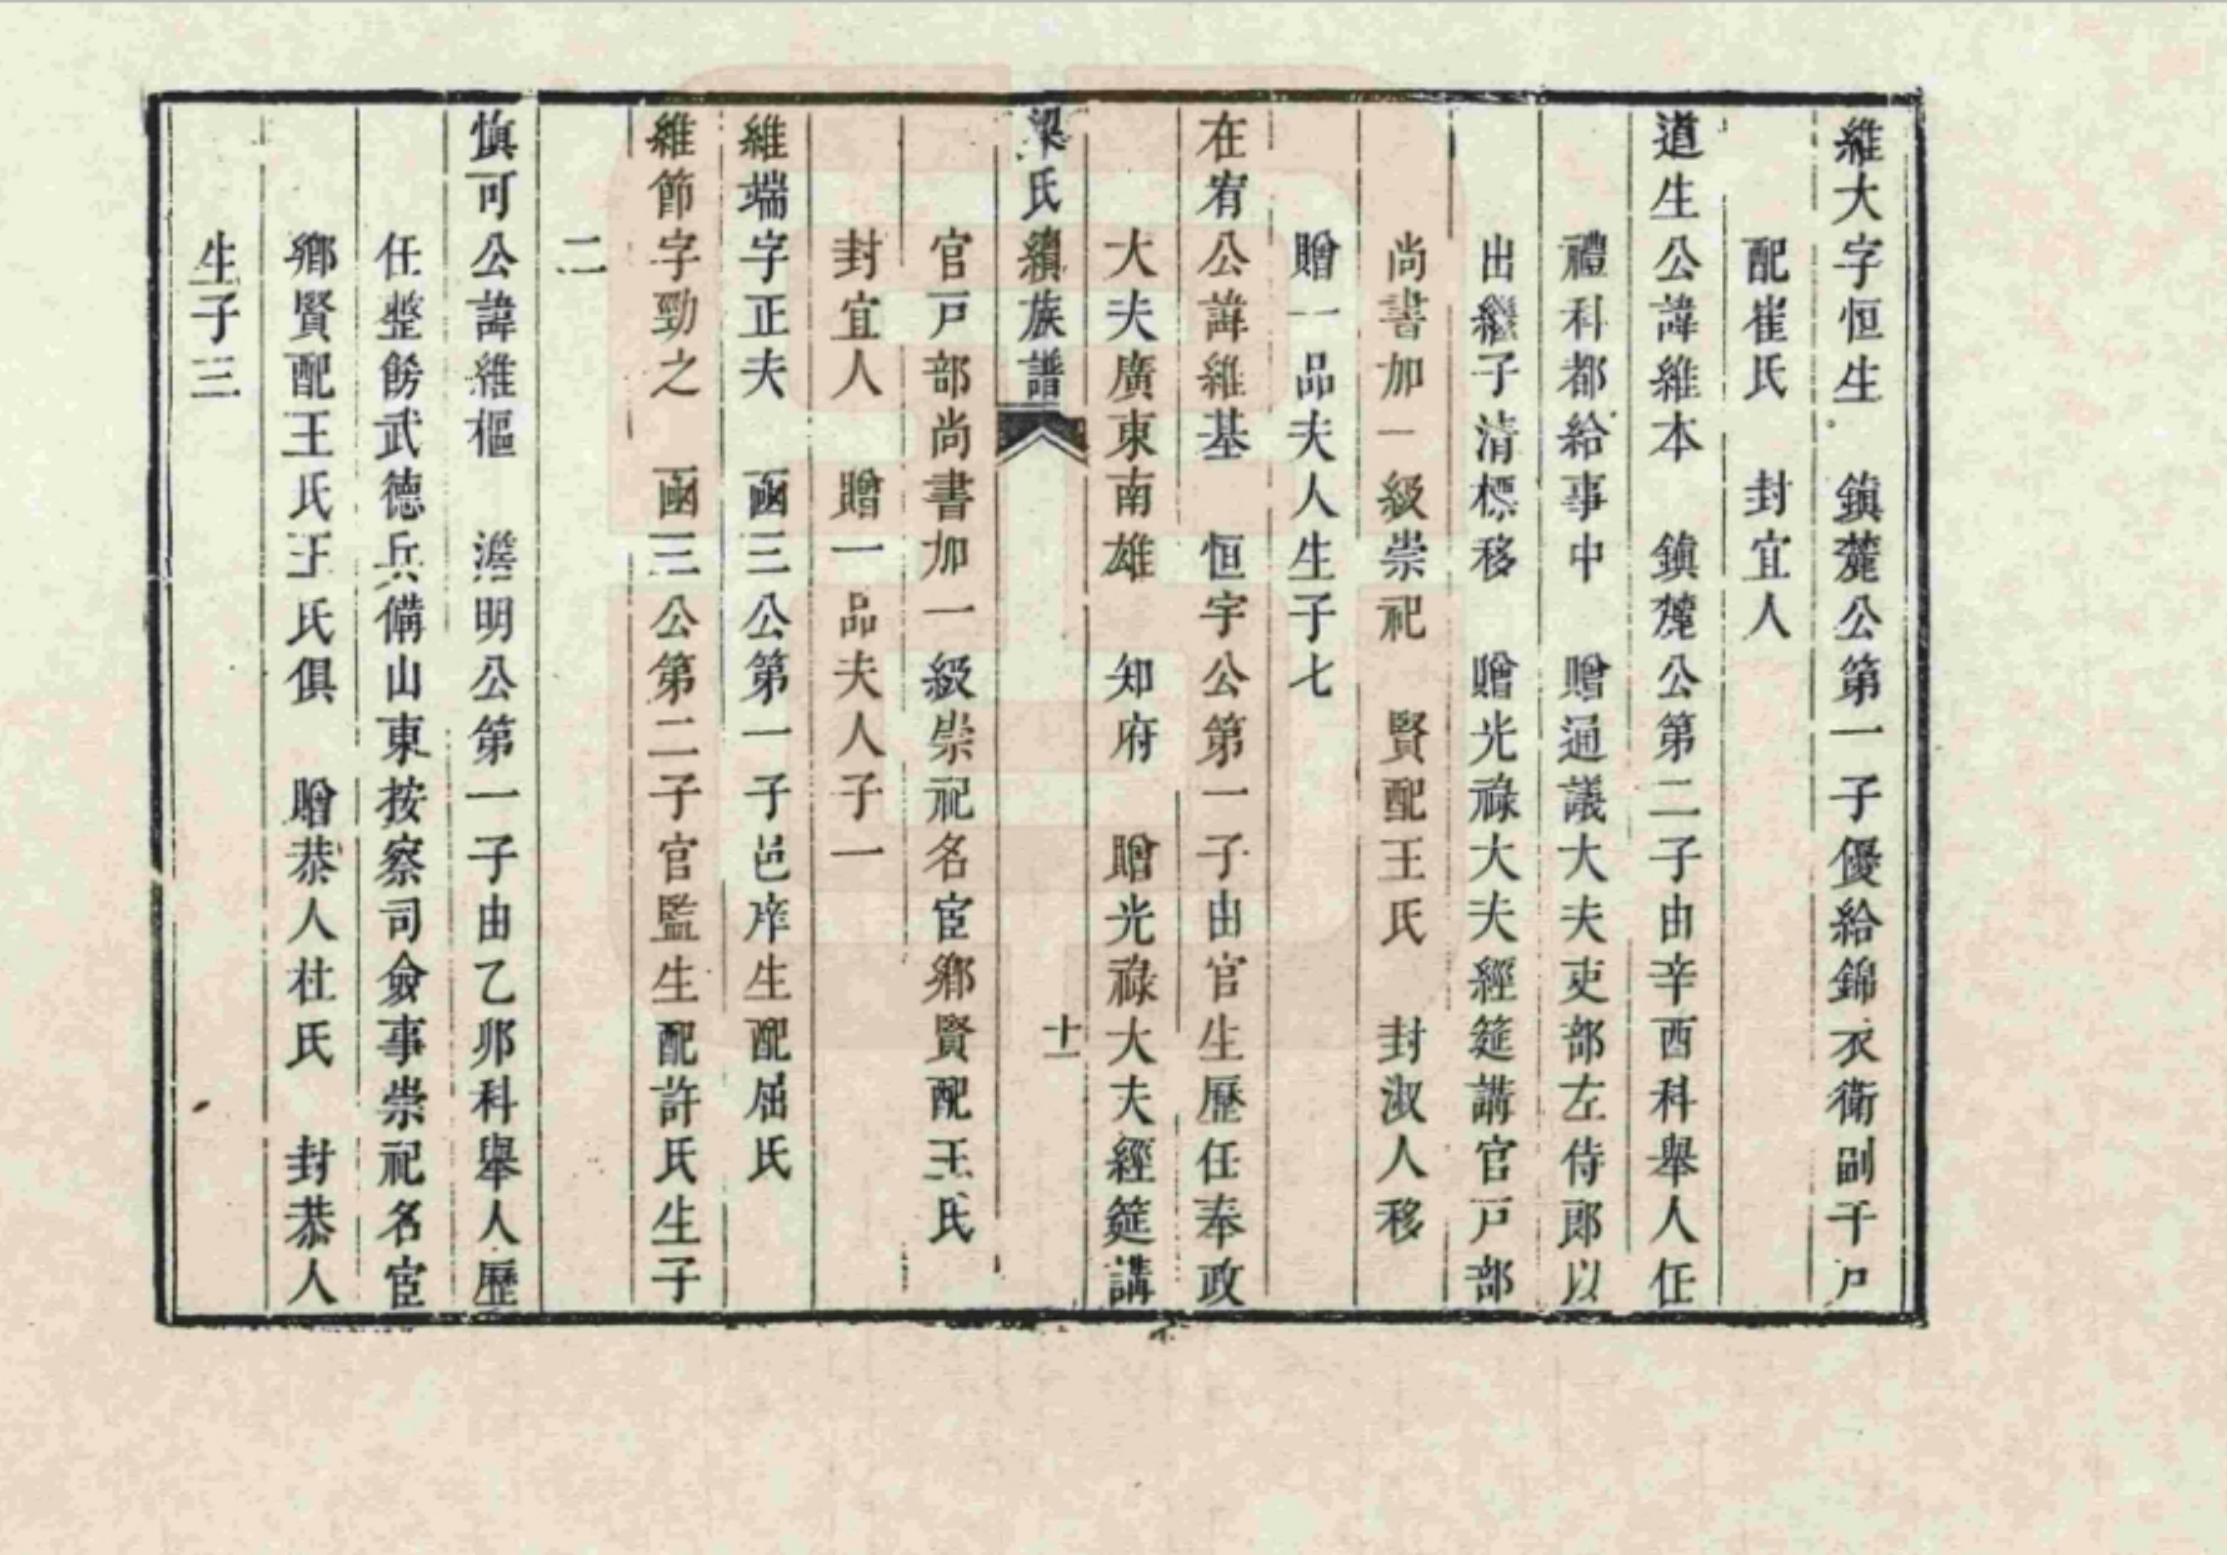 維大字恒生　鎮麓公第一子優給錦衣衛副千戶
配崔氏　封宜人
道生公諱維本　鎮麓公第二子由辛酉科舉人任
禮科都給事中　贈通議大夫吏部左侍郎以
出繼子清標移　贈光祿大夫經筵講官戶部
尚書加一級崇祀　賢配王氏　封淑人移
贈一品夫人生子七
在宥公諱維基　恒宇公第一子由官生歷任奉政
大夫廣東南雄　知府　贈光祿大夫經筵講
梁氏續族譜　十一
官戶部尚書加一級崇祀名宦鄉賢配王氏
封宜人　贈一品夫人子一
維端字正夫　函三公第一子邑庠生配屈氏
維節字勁之　函三公第二子官監生配許氏生子
二
慎可公諱維樞　澹明公第一子由乙卯科舉人歷
任整飭武德兵備山東按察司僉事崇祀名宦
鄉賢配王氏王氏俱　贈恭人杜氏　封恭人
生子三